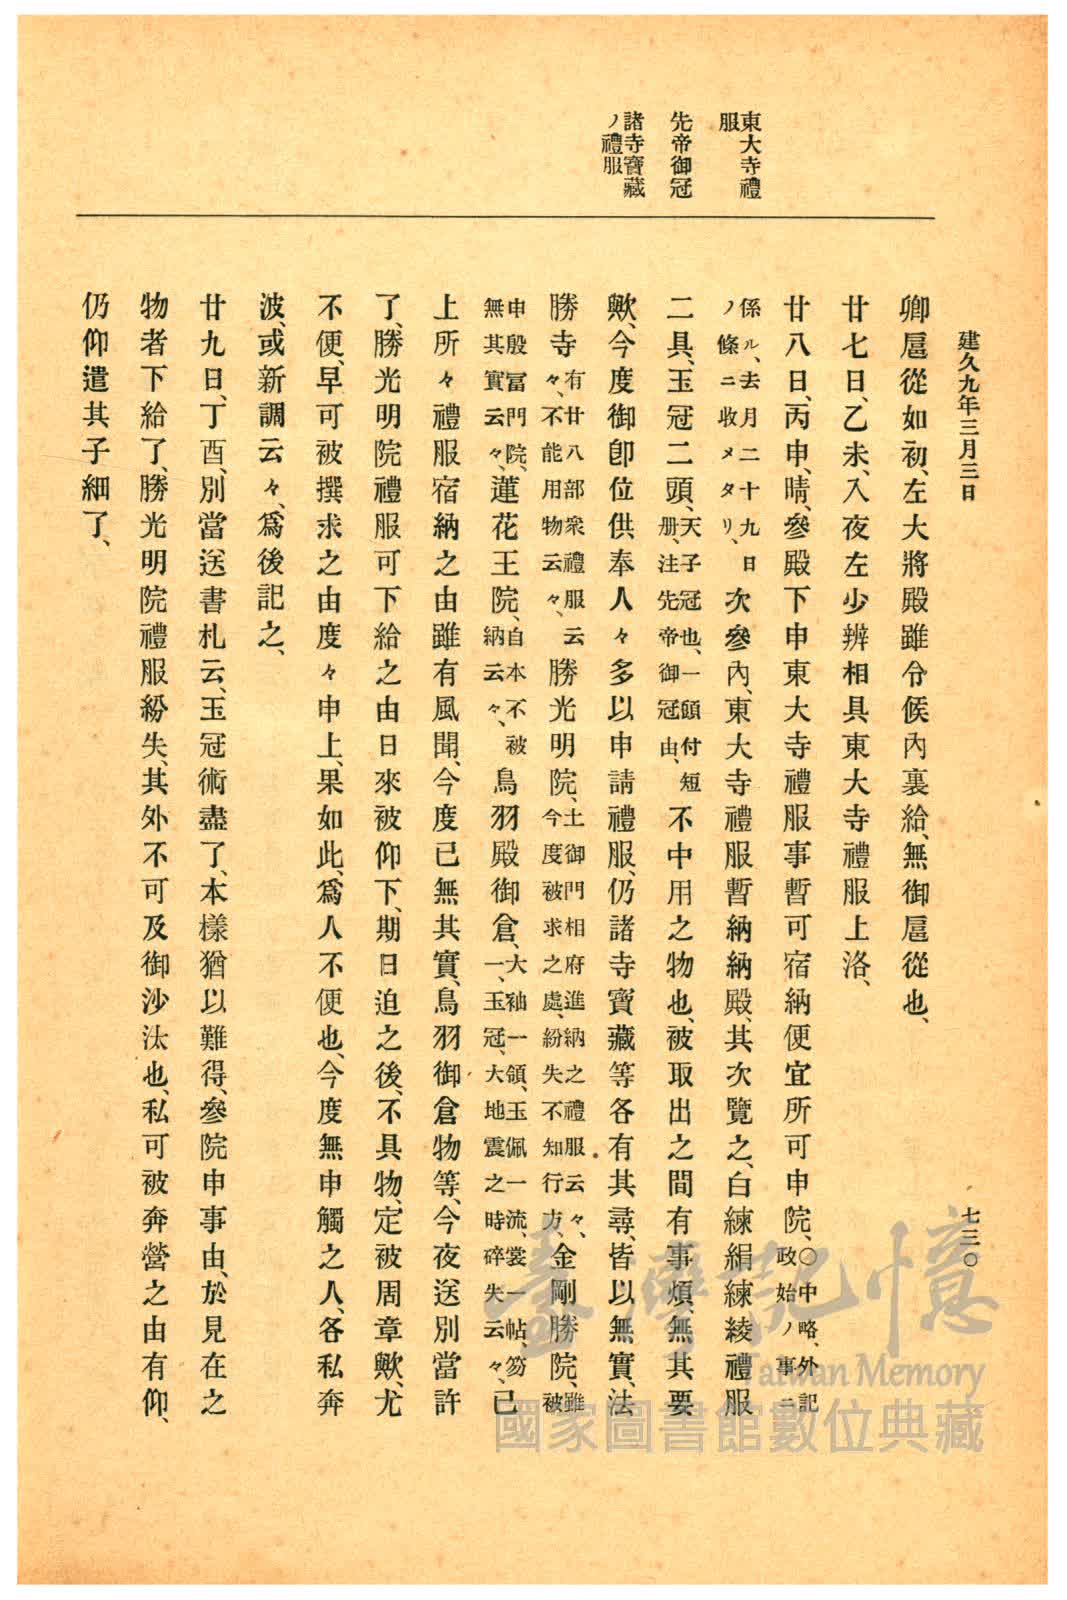 建久九年三月三日
七三〇
東大寺禮
服
先帝御冠
諸寺寶藏
ノ禮服
卿扈從如初、左大將殿雖令候內裏給、無御扈從也、
廿七日、乙未、入夜左少辨相具東大寺禮服上洛、
廿八日、丙申、晴、參殿下申東大寺禮服事暫可宿納便宜所可申院、〇中略、外記
政始ノ事ニ
係ル、去月二十九日
ノ條ニ收メタリ、
次參內、東大寺禮服暫納納殿、其次覽之、白練絹練綾禮服
二具、玉冠二頭、天子冠也、一頭付短
册、注先帝御冠由、
不中用之物也、被取出之間有事煩、無其要
歟、今度御卽位供奉人々多以申請禮服、仍諸寺寶藏等各有其尋、皆以無實、法
勝寺有廿八部衆禮服云
々、不能用物云々、
勝光明院、土御門相府進納之禮服云々、
今度被求之處、紛失不知行方、
金剛勝院、雖
被
申殷富門院、
無其實云々、
蓮花王院、自本不被
納云々、
鳥羽殿御倉、大袖一領、玉佩一流、裳一帖、笏
一、玉冠、大地震之時碎失云々、
已
上所々禮服宿納之由雖有風聞、今度已無其實、鳥羽御倉物等、今夜送別當許
了、勝光明院禮服可下給之由日來被仰下、期日迫之後、不具物、定被周章歟、尤
不便、早可被撰求之由度々申上、果如此、爲人不便也、今度無申觸之人、各私奔
波、或新調云々、爲後記之、
廿九日、丁酉、別當送書札云、玉冠術盡了、本樣猶以難得、參院申事由、於見在之
物者下給了、勝光明院禮服紛失、其外不可及御沙汰也、私可被奔營之由有仰、
仍仰遣其子細了、
臺灣記憶
Taiwan Memory
國家圖書館數位典藏